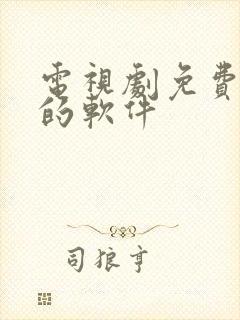 電視劇免費
的軟件
司狼亨